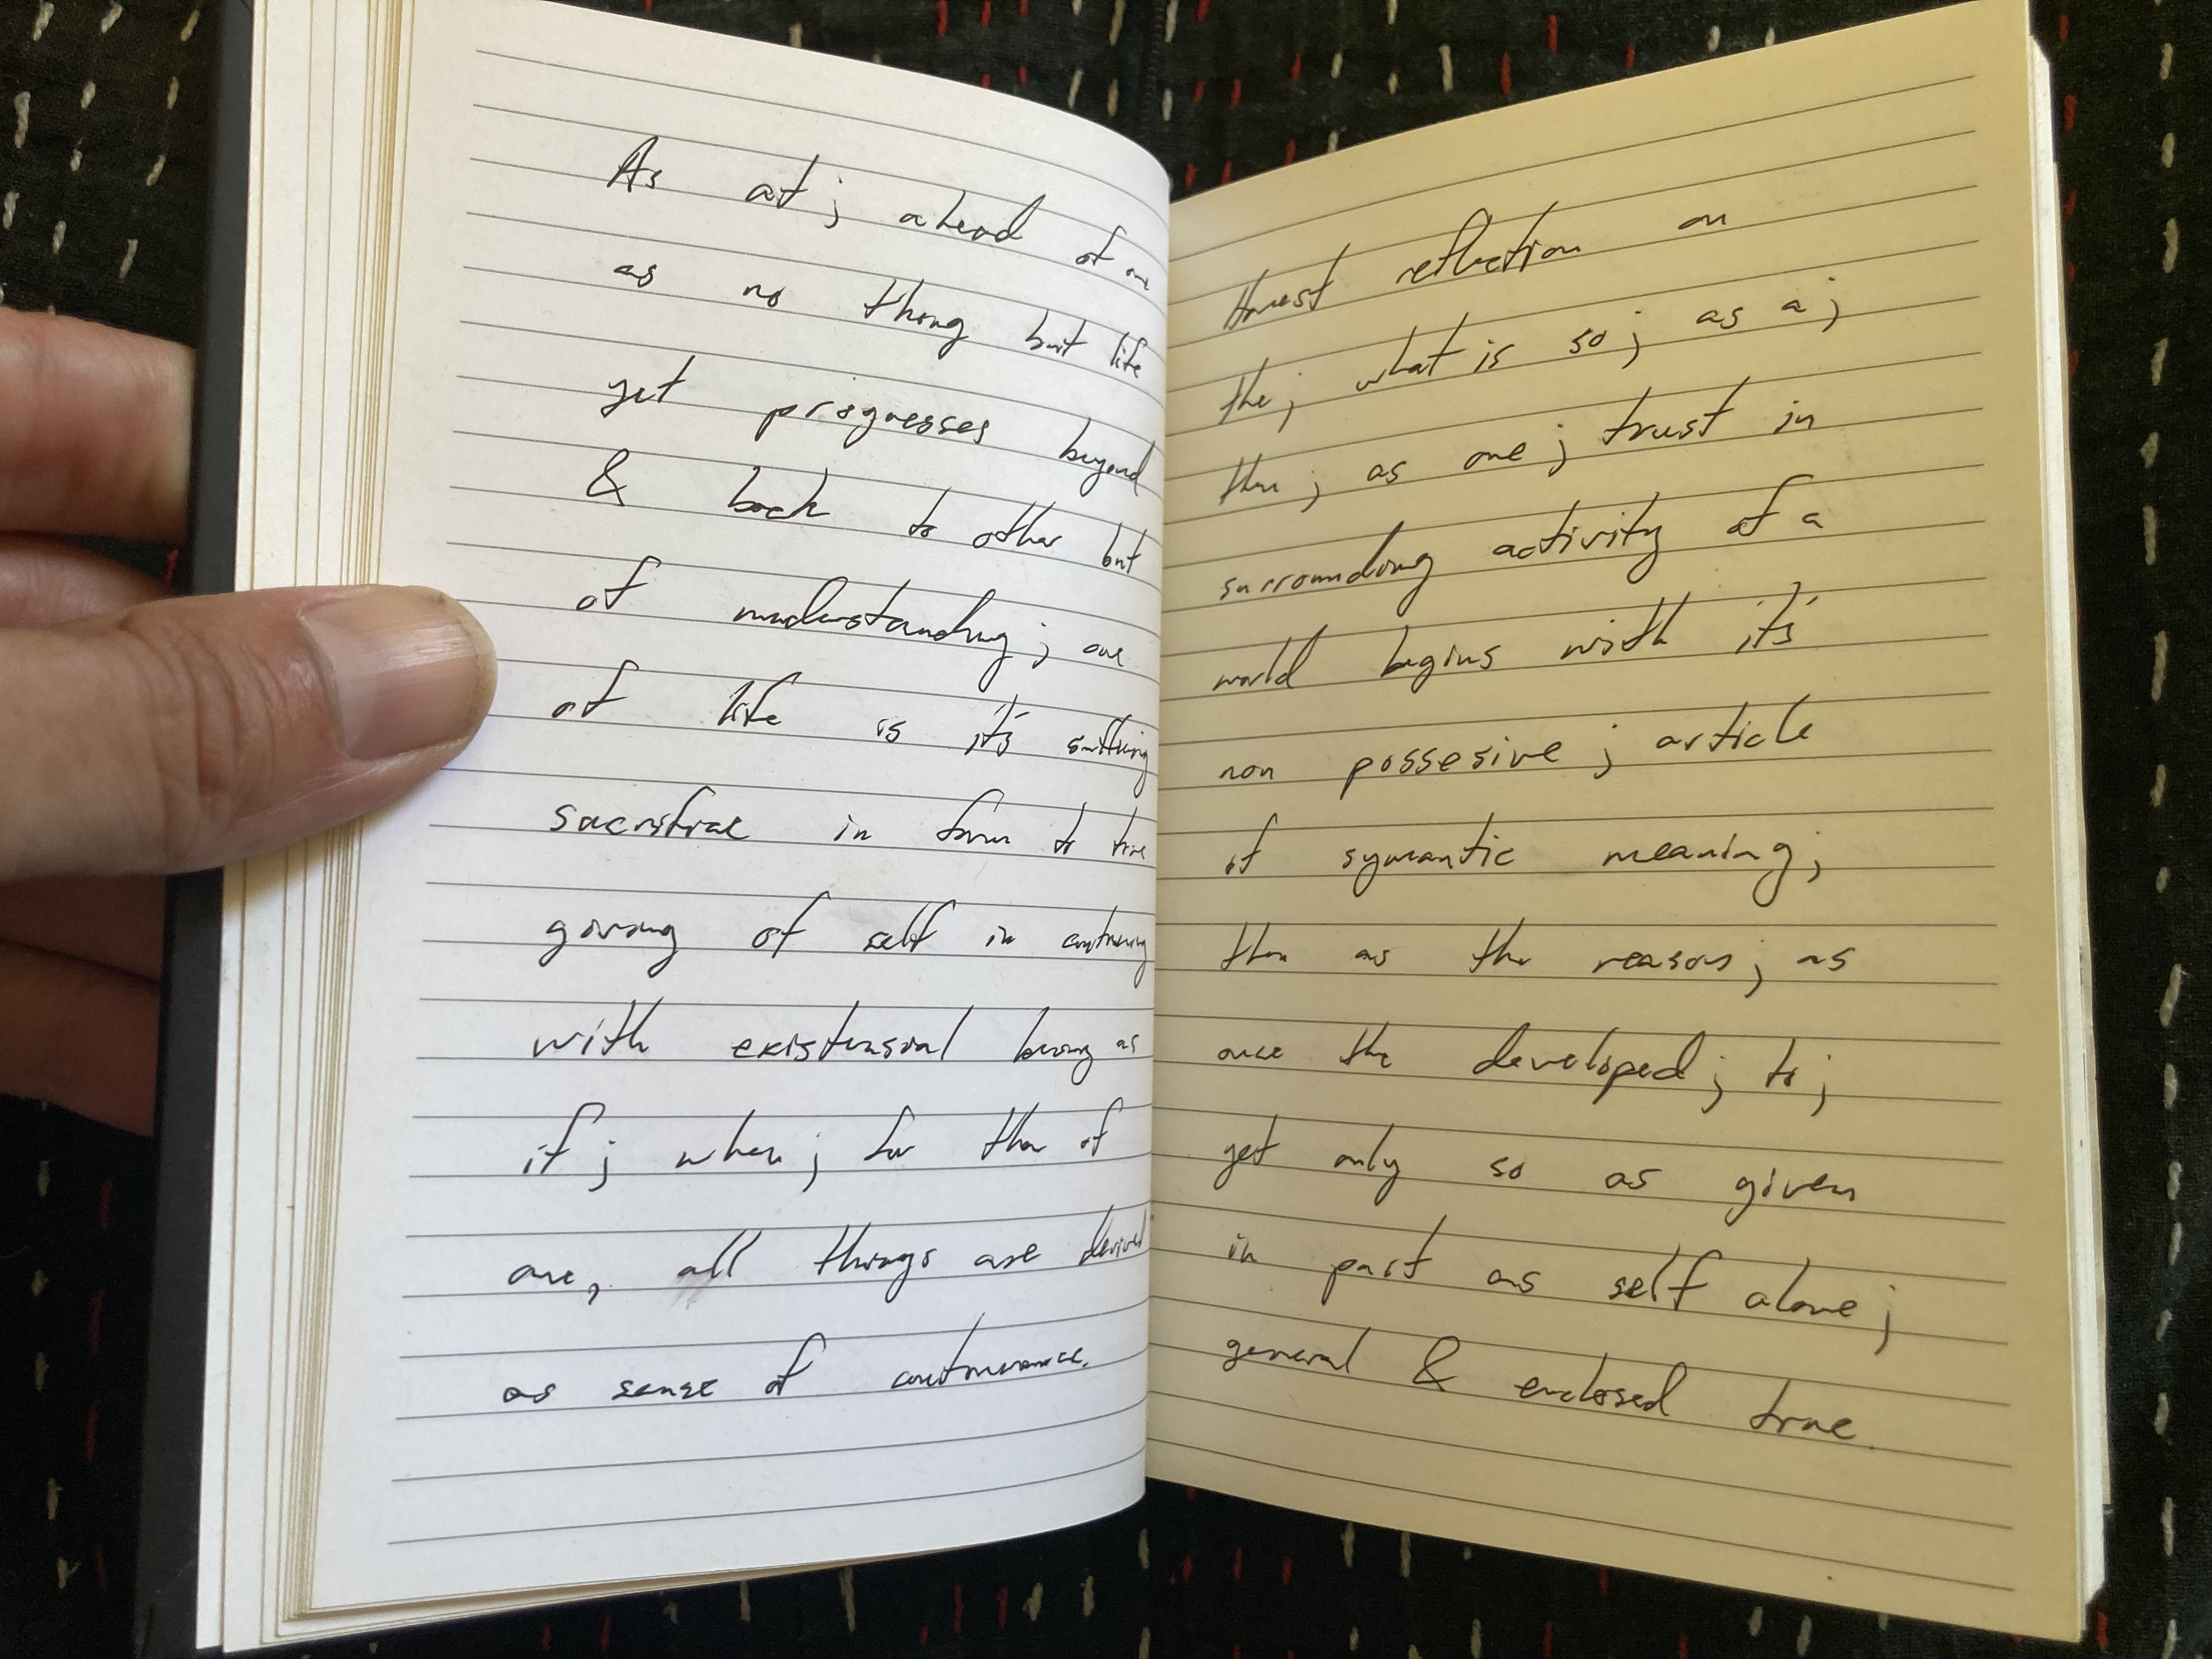 As at; ahead of one
as no thing but life
yet progresses beyond
& back to other but
of understanding; one
of life is it's suffering
in form to true
giving of self in continuing
with existensial being as
if; when; for then of
one, all things are derived
as sense of continuance.
Honest reflection on
the; what is so; as a;
then; as one; trust in
surrounding activity of a
world begins with it's
non possesive; article
of symantic meaning;
then as the reason; as
once the developed; to;
yet only so as given
in part as self alone;
general & enclosed true.